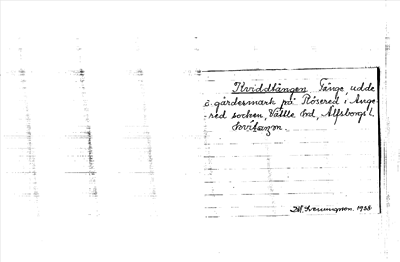 Kviddtången Tånge, udde
o. gärdesmark på Rösered i Ange
-red socken, Vättle hd, Älfsborgs l.
Hj. Svenningson. 1938